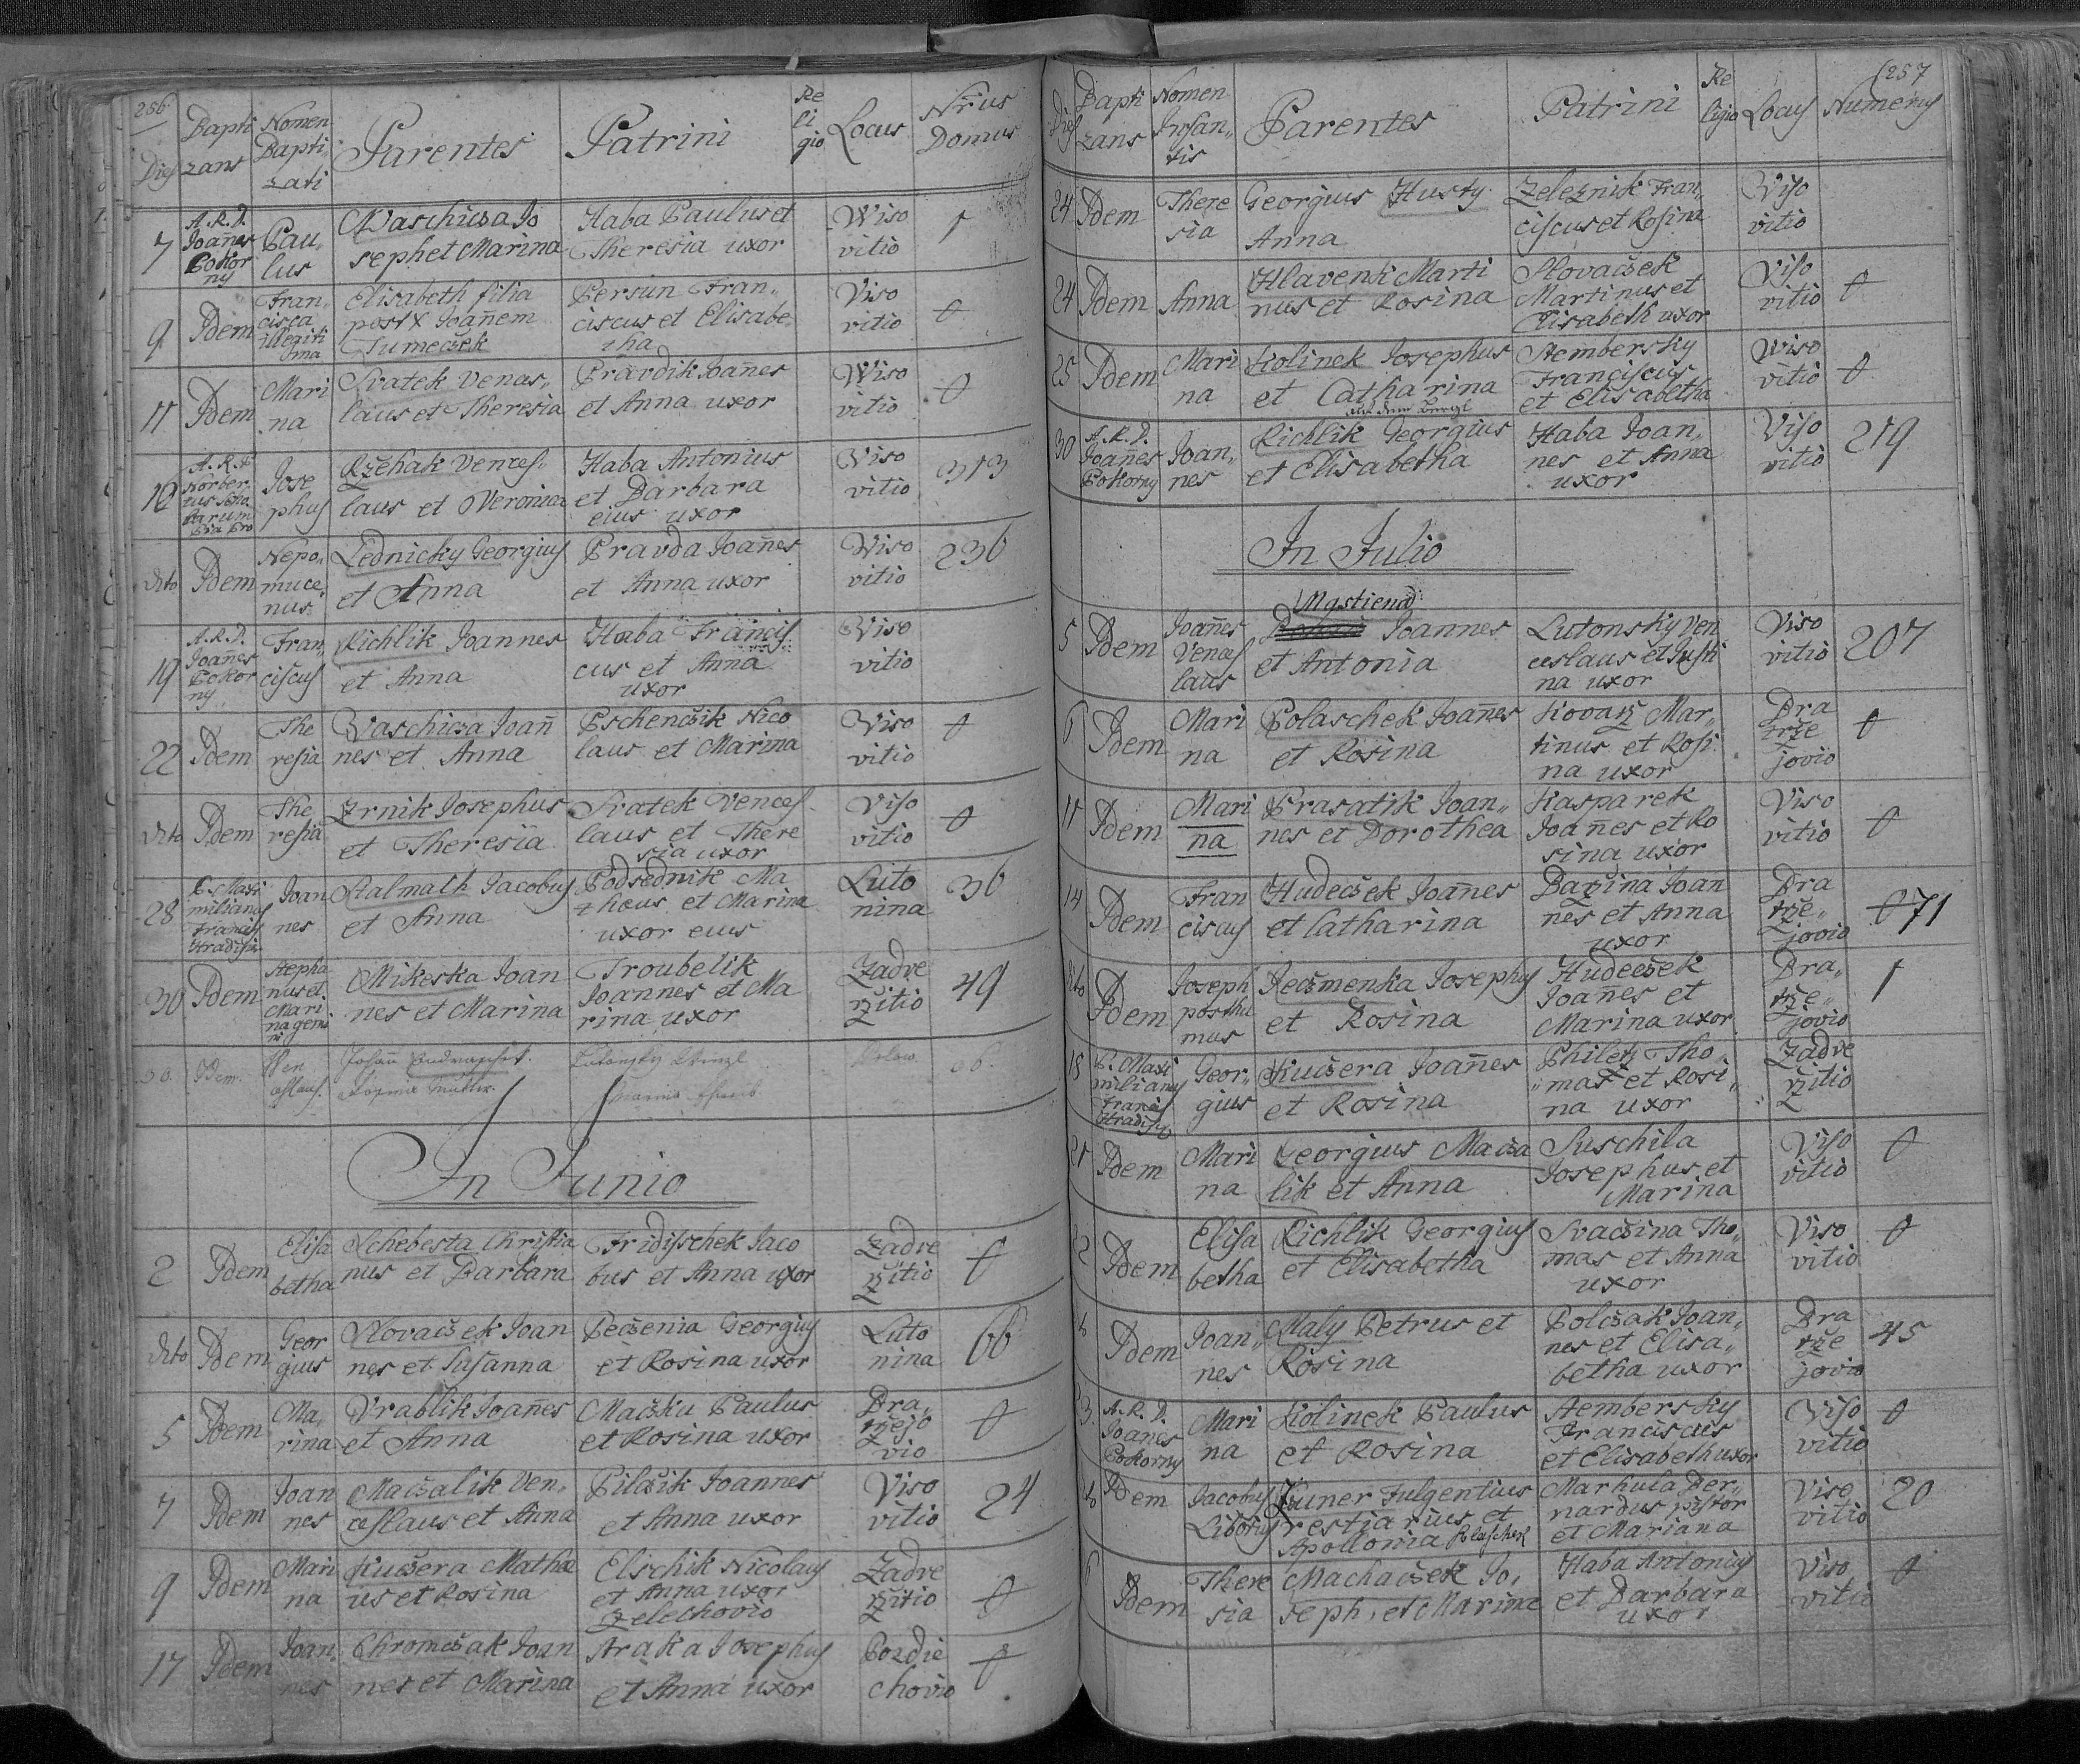 256
Dies Bapti zans Nomen Bapti zati Parentes Patrini Re li gio Locus Nrus Domus
7 A.R.D. Joañes Pokor ny Pau, lus Waschicza Jo seph et Marina Haba Paulus et Theresia uxor Wiso vitio 1
9 Idem Fran, cisca illegiti ma Elisabeth filia post Joañem Tumeczek Persun Fran, ciscus et Elisabe, tha Viso vitio 0
11 Idem Mari na Svatek Vences, laus et Theresia Pravdik Joañes et Anna uxor Wiso vitio 0
A.R.P. Norber, tus Jose phus Rzehak Vences, laus et Veronica Haba Antonius et Barbara eius uxor Viso vitio 313
dito Idem Nepo, muce, nus Lednicky Georgius et Anna Pravda Joañes et Anna uxor Viso vitio 236
19 A.R.D. Joañes Pokor ny Fran, ciscus Richlik Joannes et Anna Haba Francis cus et Anna uxor Viso vitio
22 Idem The resia Waschicza Joañ nes et Anna Pschenczik Nico laus et Marina Viso vitio 0
dito Idem The resia Zrnik Josephus et Theresia Svatek Vences laus et There sia uxor Viso vitio 0
28 P. Maxi milianus Francis Hradisch Joan nes Stalmach Jacobus et Anna Podsednik Ma thaeus et Marina uxor eius Luto nina 36
30 Idem Stepha nus et Mari na gemi ni Mikeska Joan nes et Marina Troubelik Joannes et Ma rina uxor Zadve rzitio 49
30. Idem. Wen ceslaus. Johañ Rosina Mutter. Lutonsky Wenzl
In Junio
2 Idem Elisa betha Schebesta Christia nus et Barbara Fridischek Jaco bus et Anna uxor Zadve rzitio 0
dito Idem Geor gius Slovaczek Joan nes et Susanna Peczenia Georgius et Rosina uxor Luto nina 66
5 Idem Ma, rina Vrablik Joañes et Anna Maczku Paulus et Rosina uxor Dra, rzejo vio 0
7 Idem Joan nes Maczalik Ven, ceslaus et Anna Pilczik Joannes et Anna uxor Viso vitio 24
9 Idem Mari na Kuczera Mathæ us et Rosina Elschik Nicolaus et Anna uxor Zelechovio Zadve rzitio 0
17 Idem Joan, nes Chromczak Joan nes et Marina Straka Josephus et Anna uxor Pozdie chovio 0
257
Dies Bapti zans Nomen Infan, tis Parentes Patrini Re ligio Locus Numerus
24 Idem There sia Georgius Husty Anna Zeleznik Fran, ciscus et Rosina Viso vitio
24 Idem Anna Hlavenk Marti nus et Rosina Slovaczek Martinus et Elisabeth uxor Viso vitio 0
25 Idem Mari na Kolinek Josephus et Catharina Stembersky Franciscus et Elisabetha Wiso vitio 0
30 A.R.D. Joañes Pokorny Joan, nes Richlik Georgius et Elisabetha Haba Joan, nes et Anna uxor Viso vitio 219
In Julio
5 Idem Joañes Vences laus Mastiena Joannes et Antonia Lutonsky Ven ceslaus et Justi na uxor Viso vitio 207
6 Idem Mari na Polaschek Joañes et Rosina Kovarz Mar, tinus et Rosi na uxor Dra rze jovio 0
11 Idem Mari na Prasatik Joan, nes et Dorothea Kasparek Joañes et Ro sina uxor Viso vitio 0
14 Idem Fran ciscus Hudeczek Joañes et Catharina Bazina Joan nes et Anna uxor Dra rze, jovio 71
dito Idem Joseph posthu mus Jeczmenka Josephus et Rosina Hudeczek Joañes et Marina uxor Dra, rze, jovio 1
18 P. Maxi milianus Francis Hradisch Geor, gius Kuczera Joañes et Rosina Philek Tho, mas et Rosi, na uxor Zadve rzitio
21 Idem Mari na Georgius Macza lik et Anna Suschila Josephus et Marina Viso vitio 0
22 Idem Elisa betha Richlik Georgius et Elisabetha Svaczina Tho, mas et Anna uxor Viso vitio 0
Idem Joan, nes Maly Petrus et Rosina Polczak Joan, nes et Elisa, betha uxor Dra rze jovio 45
A.R.D. Joañes Pokorny Mari na Kolinek Paulus et Rosina Stembersky Franciscus et Elisabeth uxor Viso vitio 0
Idem Jacobus Liborius Fulgentius et Apollonia Polaschek Marhula Ber, nardus pistor et Mariana Viso vitio 20
Idem There sia Machaczek Jo, seph, et Marina Haba Antonius et Barbara uxor Viso vitio 0